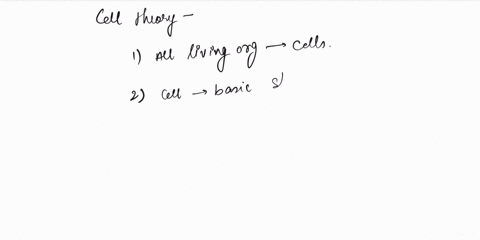 Cell theory -
1) All living org → cells.
2) Cell → basic